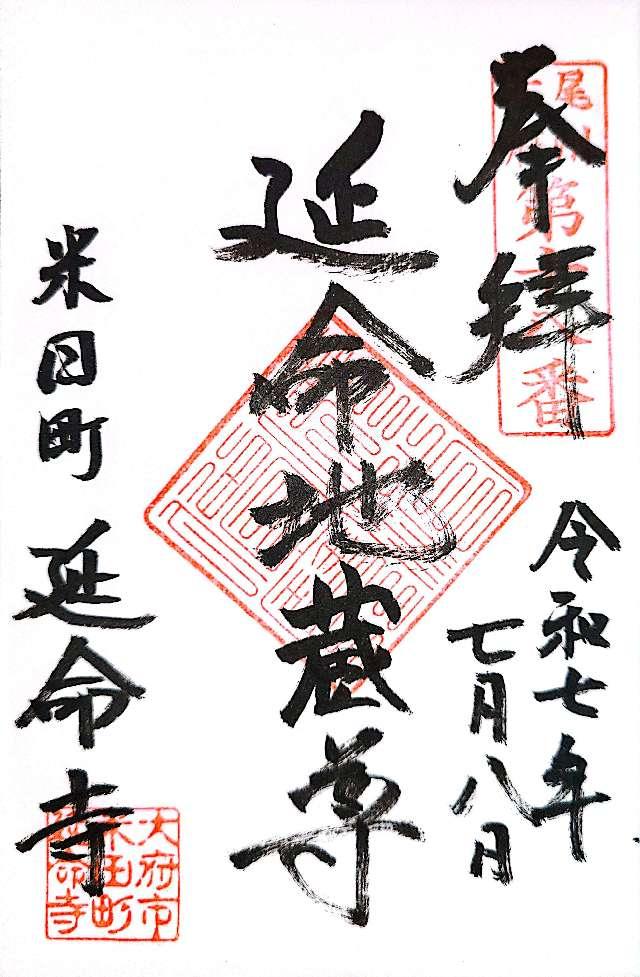 奉拝
令和七年
七月八日
延命地蔵尊
米田町 延命寺
尾
第
番
大府市
米田町
延命寺